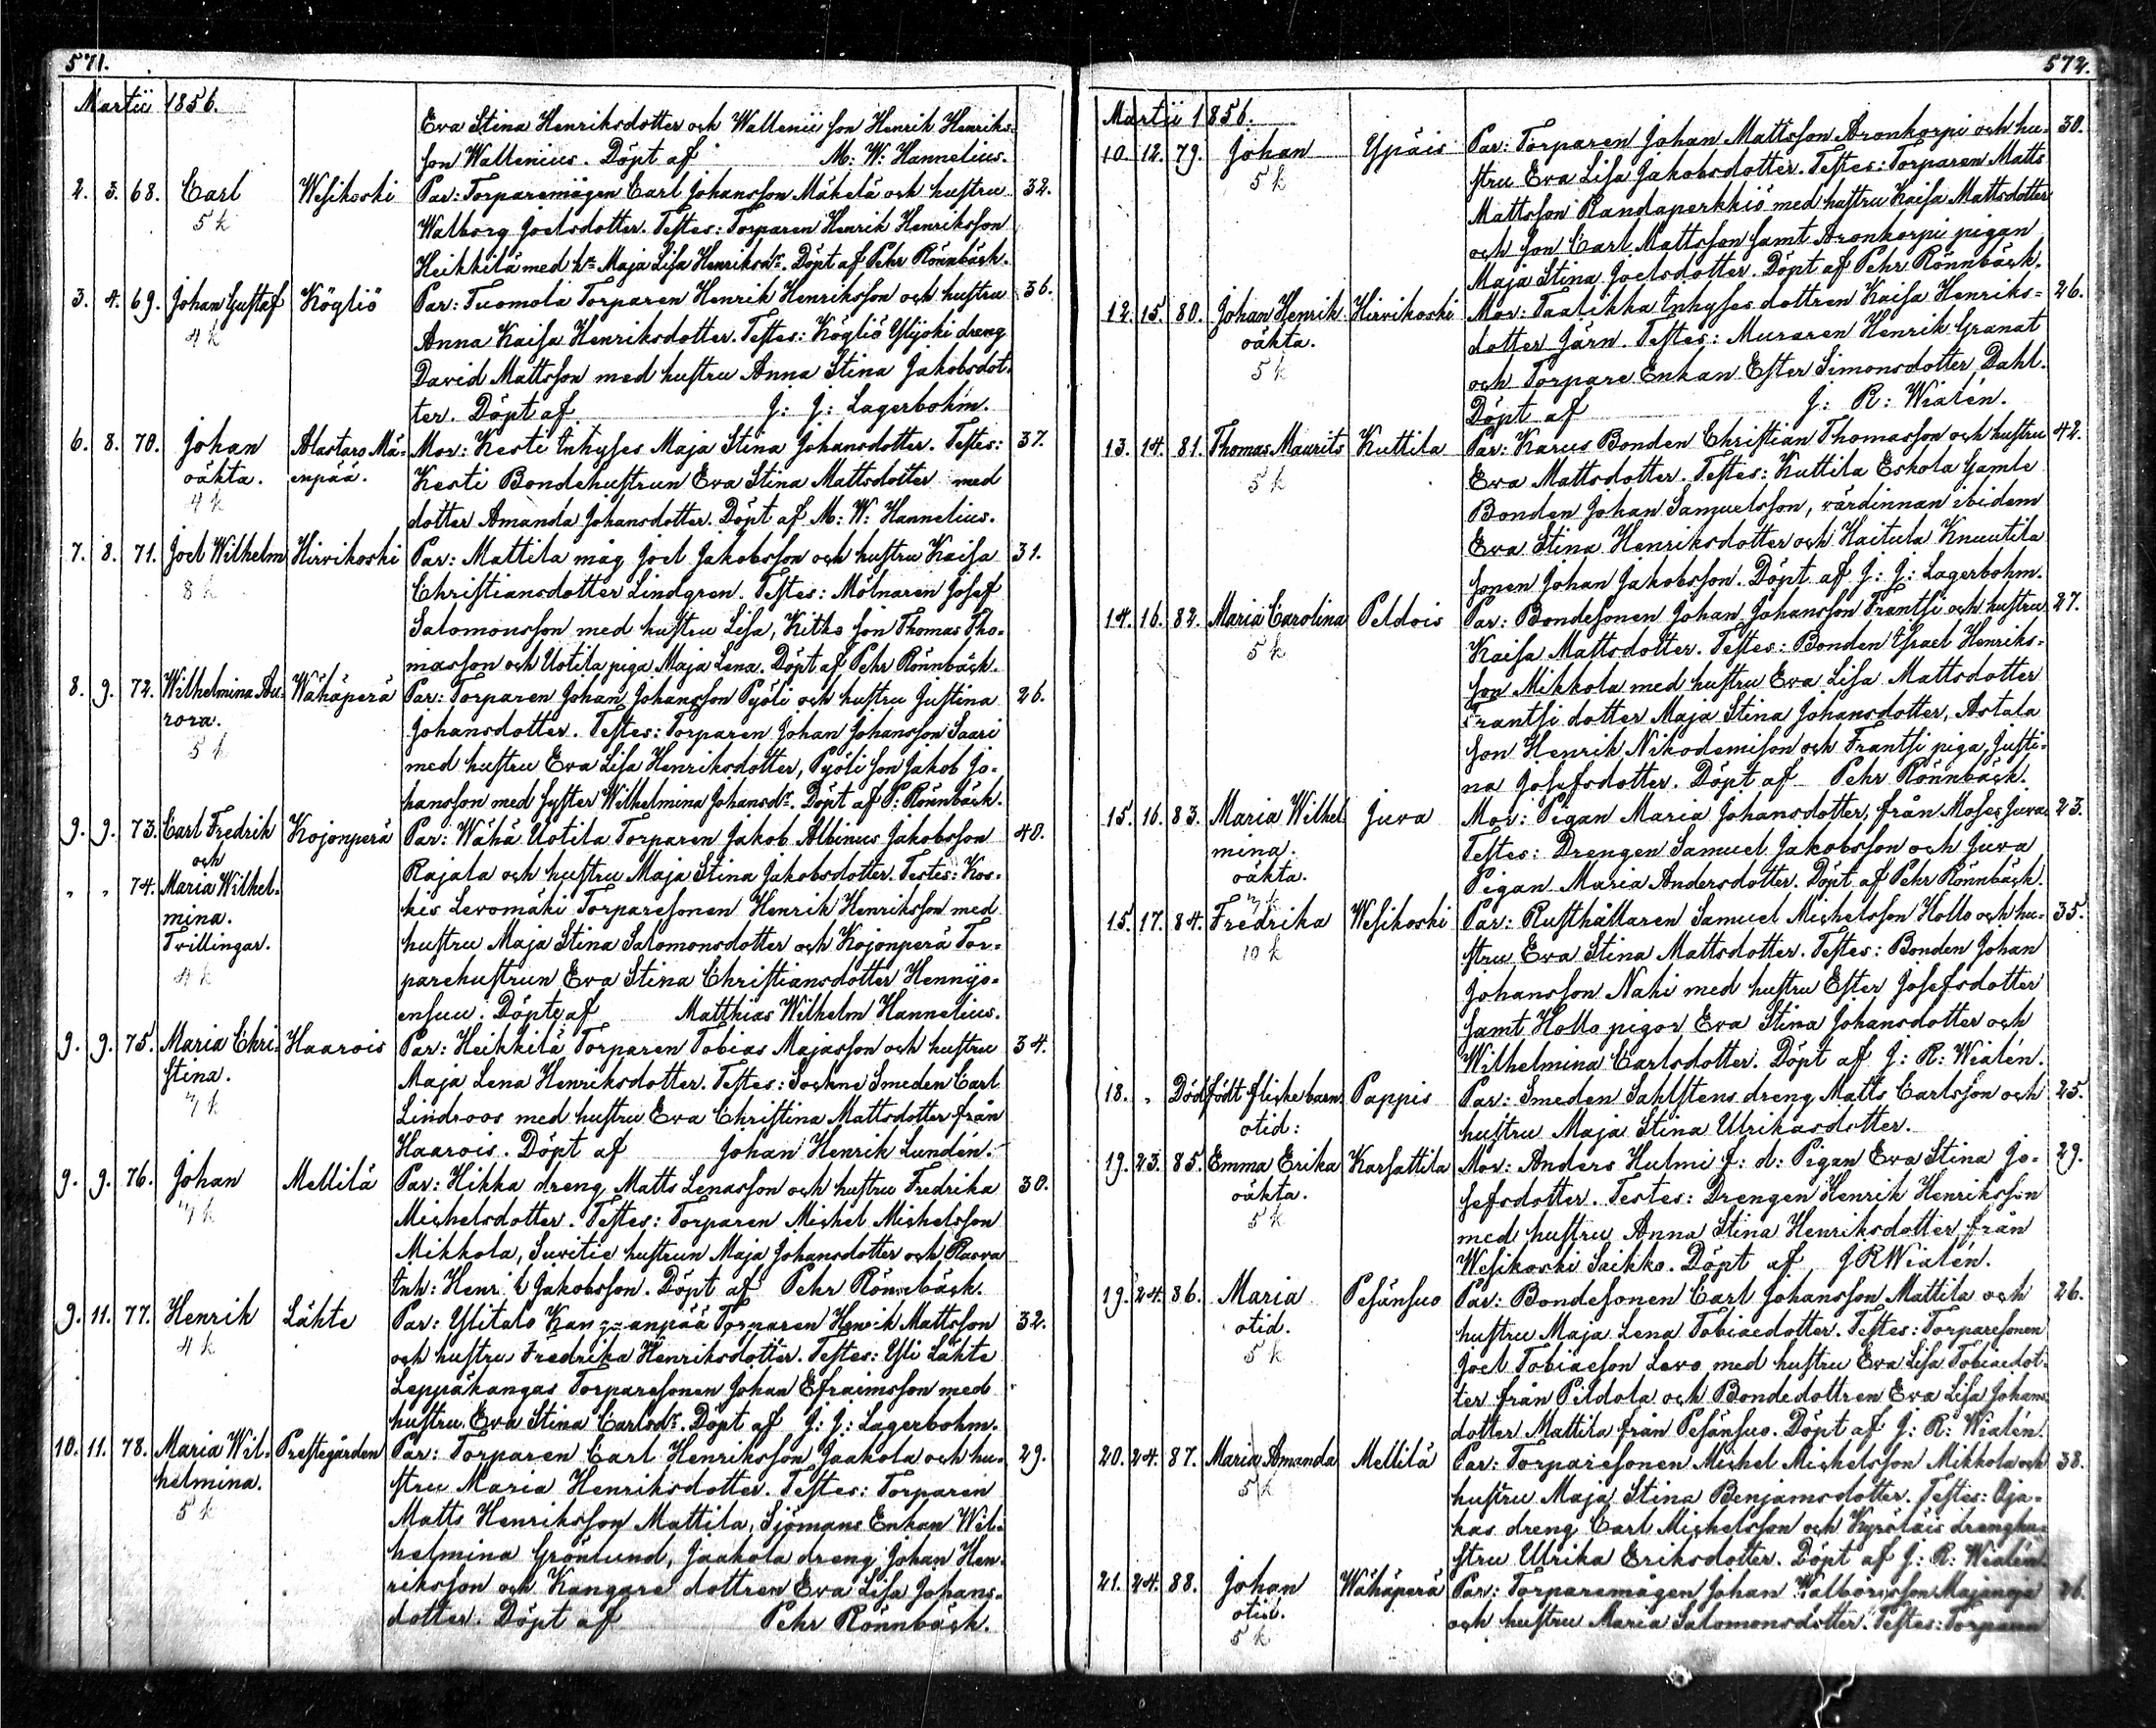 571.
Martii 1856.
Eva Stina Henriksdotter och Wallenii son Henrik Henriks-
son Wallenius. Döpt af M: W: Hannelius.
2. 3. 68. Carl Wesikoski Par: Torparemågen Carl Johansson Mäkelä och hustru 32.
5 k Walborg Joelsdotter. Testes: Torparen Henrik Henriksson
Heikkilä med hu Maja Lisa Henriksdr. Döpt af Pehr Rönnbäck.
3. 4. 69. Johan Gustaf Kögliö Par: Tuomola Torparen Henrik Henriksson och hustru 36.
4 k Anna Kaisa Henriksdotter. Testes: Kögliö Ylijoki dreng
David Mattsson med hustru Anna Stina Jakobsdot-
ter. Döpt af J: J: Lagerbohm.
6. 8. 70. Johan Alastaro Mä- Mor: Kesti Inhyses Maja Stina Johansdotter. Testes: 37.
oäkta. enpää. Kesti Bondehustrun Eva Stina Mattsdotter med
4 k dotter Amanda Johansdotter. Döpt af M: W: Hannelius.
7. 8. 71. Joel Wilhelm Hirvikoski Par: Mattila måg Joel Jakobsson och hustru Kaisa 31.
8 k Christiansdotter Lindgren. Testes: Mölnaren Josef
Salomonsson med hustru Lisa, Kitko son Thomas Tho-
masson och Uotila piga Maja Lena. Döpt af Pehr Rönnbäck.
8. 9. 72. Wilhelmina Au- Wähäperä Par: Torparen Johan Johansson Pyöli och hustru Justina 26.
rora. Johansdotter. Testes: Torparen Johan Johansson Saari
5 k med hustru Eva Lisa Henriksdotter, Pyöli son Jakob Jo-
hansson med syster Wilhelmina Johansdr. Döpt af P: Rönnbäck.
9. 9. 73. Carl Fredrik Kojonperä Par: Wähä Uotila Torparen Jakob Albinus Jakobsson 40.
och Rajala och hustru Maja Stina Jakobsdotter. Testes: Kos-
" " 74. Maria Wilhel- kis Levomäki Torparesonen Henrik Henriksson med
mina.
Tvillingar. hustru Maja Stina Salomonsdotter och Kojonperä Tor-
4 k parehustrun Eva Stina Christiansdotter Hennijo-
ensuu. Döpte af Matthias Wilhelm Hannelius.
9. 9. 75. Maria Chri- Haarois Par: Heikkilä Torparen Tobias Majasson och hustru 34.
stina. Maja Lena Henriksdotter. Testes: Sockne Smeden Carl
7 k Lindroos med hustru Eva Christina Mattsdotter från
Haarois. Döpt af Johan Henrik Lundén.
9. 9. 76. Johan Mellilä Par: Hikka dreng Matts Lenasson och hustru Fredrika 30.
7 k Michelsdotter. Testes: Torparen Michel Michelsson
Mikkola, Suvitie hustrun Maja Johansdotter och Rasva
Inh: Henrik Jakobsson. Döpt af Pehr Rönnbäck.
9. 11. 77. Henrik Lähte Par: Ylitalo Kangaanpää Torparen Henrik Mattsson 32.
4 k och hustru Fredrika Henriksdotter. Testes: Yli Lähte
Leppäkangas Torparesonen Johan Efraimsson med
hustru Eva Stina Carlsdr. Döpt af J: J: Lagerbohm.
10. 11. 78. Maria Wil- Prestegården Par: Torparen Carl Henriksson Jaakola och hu- 29.
helmina. stru Maria Henriksdotter. Testes: Torparen
5 k Matts Henriksson Mattila, Sjömans Enkan Wil-
helmina Grönlund, Jaakola dreng Johan Hen-
riksson och Kangare dottren Eva Lisa Johans-
dotter. Döpt af Pehr Rönnbäck.
572.
Martii 1856.
10. 12. 79. Johan Ypäis Par: Torparen Johan Mattsson Aronkorpi och hu- 30.
5 k stru Eva Lisa Jakobsdotter. Testes: Torparen Matts
Mattsson Randaperkkiö med hustru Kaisa Mattsdotter
och son Carl Mattsson samt Aronkorpi pigan
Maja Stina Joelsdotter. Döpt af Pehr Rönnbäck.
12. 15. 80. Johan Henrik Hirvikoski Mor: Taalikka Inhyses dottren Kaisa Henriks- 26.
oäkta. dotter Järn. Testes: Muraren Henrik Granat
5 k och Torpare Enkan Ester Simonsdotter Dahl.
Döpt af J: R: Wialén.
13. 14. 81. Thomas Maurits Kuttila Par: Karus Bonden Christian Thomasson och hustru 42.
5 k Eva Mattsdotter. Testes: Kuttila Eskola Gamle
Bonden Johan Samuelsson, värdinnan ibidem
Eva Stina Henriksdotter och Haitula Knuutila
sonen Johan Jakobsson. Döpt af J: J: Lagerbohm.
14. 16. 82. Maria Carolina Peldois Par: Bondesonen Johan Johansson Frantsi och hustru 27.
5 k Kaisa Mattsdotter. Testes: Bonden Israel Henriks-
son Mikkola med hustru Eva Lisa Mattsdotter
Frantsi dotter Maja Stina Johansdotter, Astala
son Henrik Nikodemison och Frantsi piga Justi-
na Josefsdotter. Döpt af Pehr Rönnbäck.
15. 16. 83. Maria Wilhel Juva Mor: Pigan Maria Johansdotter, från Moses Juva. 23.
mina. Testes: Drengen Samuel Jakobsson och Juva
oäkta. Pigan Maria Andersdotter. Döpt af Pehr Rönnbäck.
7 k
15. 17. 84. Fredrika Wesikoski Par: Rusthållaren Samuel Michelsson Hollo och hu- 35.
10 k stru Eva Stina Mattsdotter. Testes: Bonden Johan
Johansson Nahi med hustru Ester Josefsdotter
samt Hollo pigor Eva Stina Johansdotter och
Wilhelmina Carlsdotter. Döpt af J: R: Wialén.
18. " Dödfödt flickebarn Pappis Par: Smeden Sahlstens dreng Matts Carlsson och 25.
otid: hustru Maja Stina Ulrikasdotter.
19. 23. 85. Emma Erika Karsattila Mor: Anders Hulmi f: d: Pigan Eva Stina Jo- 29.
oäkta. sefsdotter. Testes: Drengen Henrik Henriksson
5 k med hustru Anna Stina Henriksdotter från
Wesikoski Saikko. Döpt af J R Wialén.
19. 24. 86. Maria Pesänsuo Par: Bondesonen Carl Johansson Mattila och 26.
otid. hustru Maja Lena Tobiaedotter. Testes: Torparesonen
5 k Joel Tobiaeson Levo med hustru Eva Lisa Tobiaedot-
ter från Pildola och Bondedottren Eva Lisa Johans-
dotter Mattila från Pesänsuo. Döpt af J: R: Wialén.
20. 24. 87. Maria Amanda Mellilä Par: Torparesonen Michel Michelsson Mikkola och 38.
5 k hustru Maja Stina Benjamsdotter. Testes: Oja-
kas dreng Carl Michelsson och Kyröläis drenghu-
stru Ulrika Eriksdotter. Döpt af J: R: Wialén.
21. 24. 88. Johan Wähäperä Par: Torparemågen Johan Walborsson Majanoja 26.
otid. och hustru Maria Salomonsdotter. Testes: Torparen
5 k